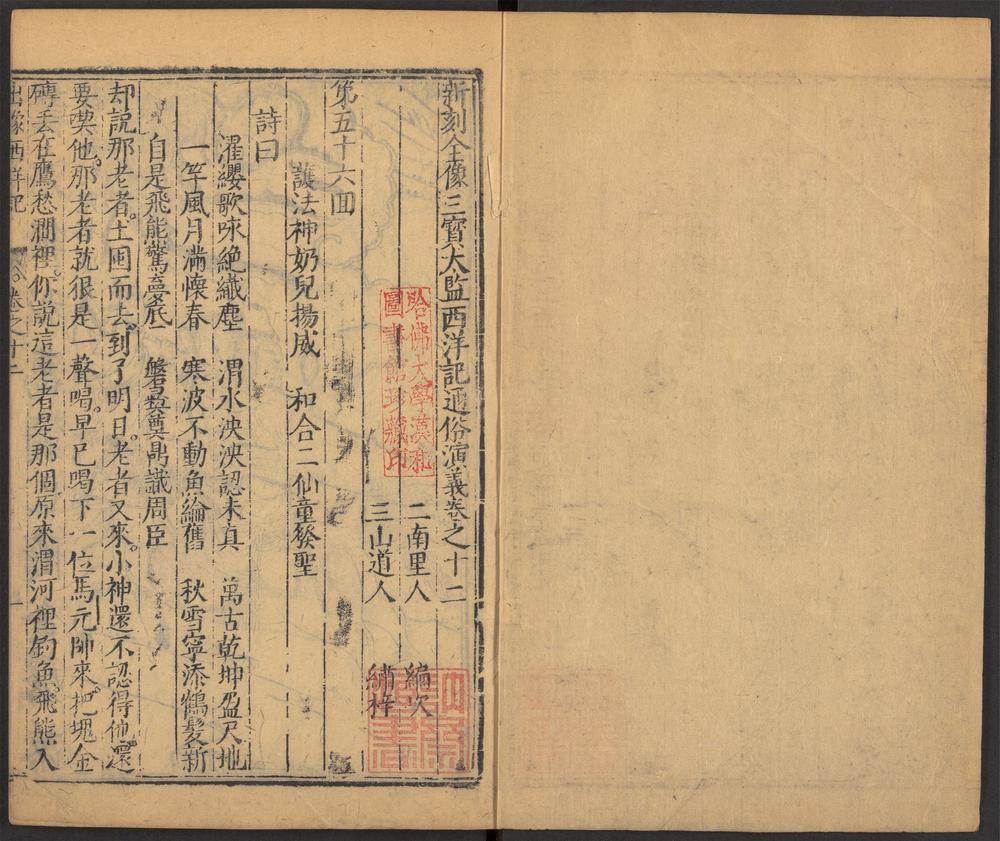 新刻全像三寳太監西洋記通俗演義卷之十二
二南里人 編次
三山道人 繡梓
哈佛大學漢和
圖書館珍藏印
第五十六回
護法神奶兒揚威 和合二仙童發聖
詩曰
濯纓歌咏絶纖塵 渭水泱泱認未真 萬古乾坤盈尺地
一竿風月滿懷春 寒波不動魚綸舊 秋雪寧添鶴髮新
自是飛能驚夢底 磻 奠 識周臣
却說那老者。土囤而去。到了明日。老者又來。小神還不認得他。還
要喫他。那老者就狠是一聲喝。早已喝下一位馬元帥來。把塊金
磚丟在鷹愁澗裡。你說這老者是那個原來渭河裡釣魚。飛熊入
出像西洋記 卷之十二 一